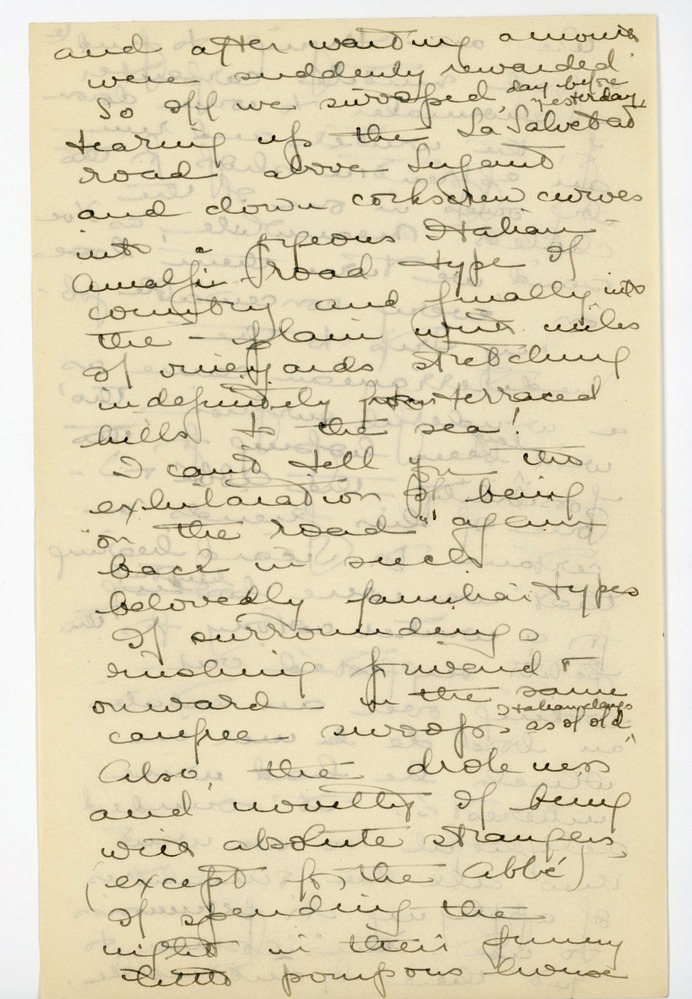 and after waiting a month
were suddenly rewarded.
So off we swooped, day before yesterday,
tearing up the La Salvetat
road above
and down corkscrew curves
into a gorgeous Italian
Amalfi road type of
country and finally into
the plain with miles
of vineyards stretching
indefinitely terraced
hills to the sea!
I can't tell you the
exhilaration of being
"on the road" again
back in such
belovedly familiar types
of surroundings
rushing forward +
onward in the same
swoops as of old Italian days
Also, the droleness
and novelty of being
with absolute strangers
(except for the Abbé)
of spending the
night in their funny
little pompous house